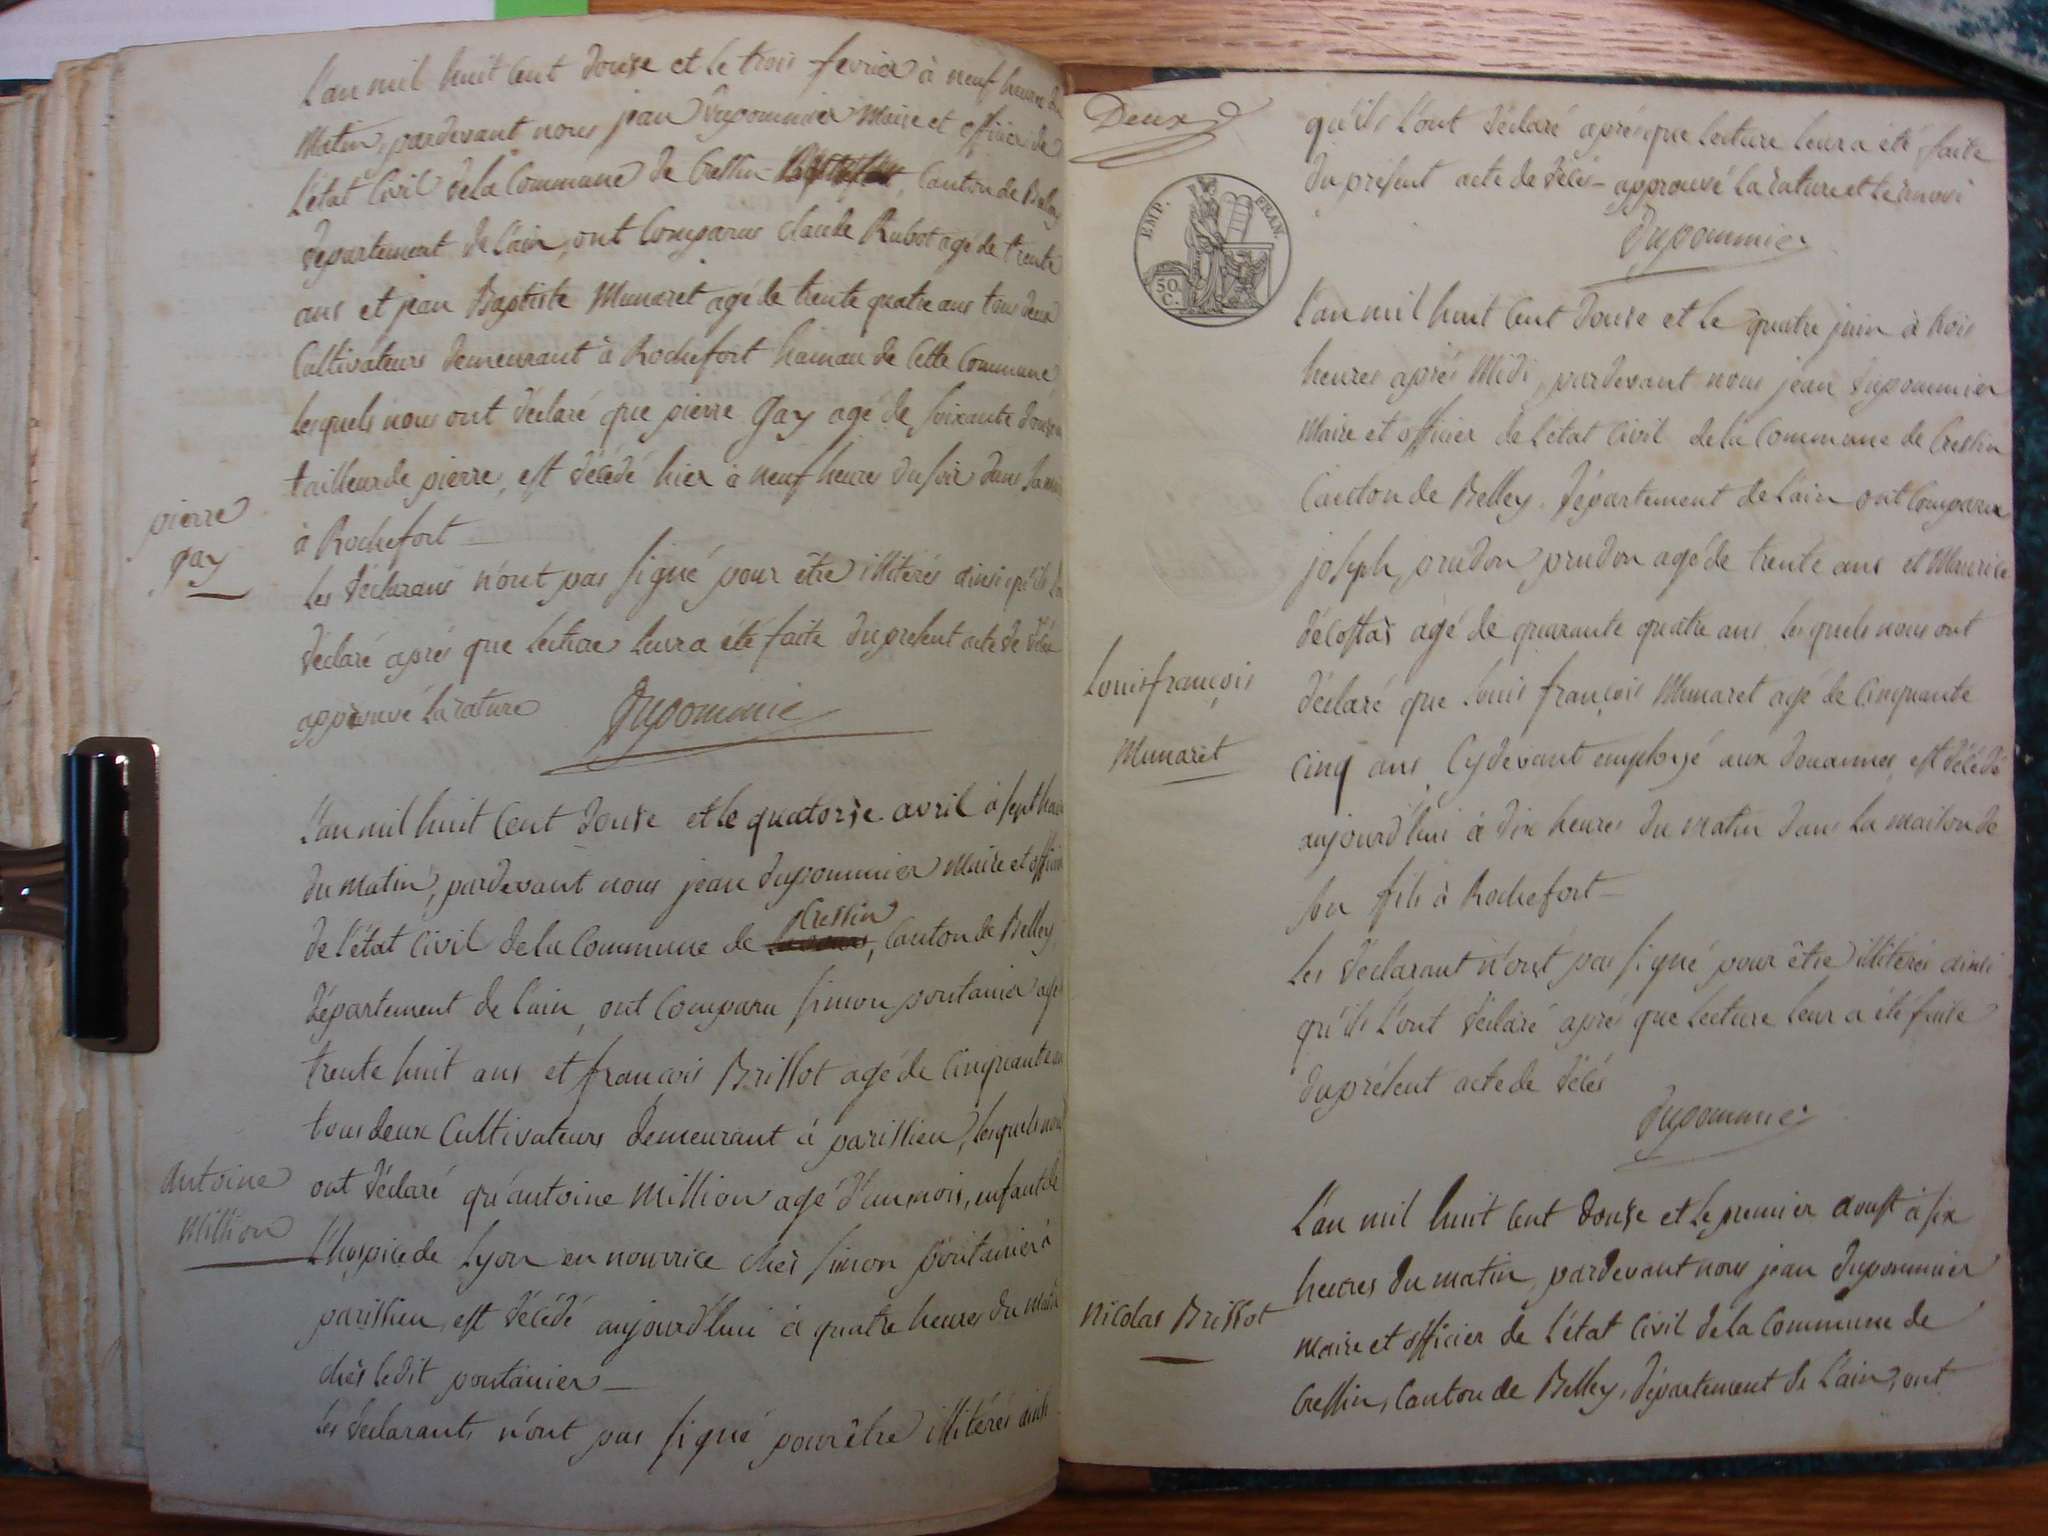 L'an mil huit Cent douse et le trois fevrier à neuf heures du
Matin, pardevant nous jean Dupommier Maire et officier de
l'état Civil de la Commune de Cressin, Canton de Belley
departement de l'ain, ont Comparus claude Rubot agé de trente
ans et jean Baptiste Munaret agé de trente quatre ans tous deux
Cultivateurs demeurant à Rochefort hamau de Cette Commune
lesquels nous ont déclaré que pierre Gay agé de soixante douse
tailleur de pierre, est décédé hier à neuf heures du soir dans sa
à Rochefort
pierre
gay
les déclarans n'ont pas signé pour être illitérés ainsi qu'ils
déclaré aprés que lecture leur a été faite du présent acte de
approuvé la rature Dupommie
L'an mil huit Cent douse et le quatorse avril à sept
du matin, pardevant nous jean dupommier Maire et
de l'état Civil de la Commune de Cressin, Canton de Belley,
département de l'ain, ont Comparu simon pontanier agé
trente huit ans et françois Brillot agé de Cinquante
tous deux Cultivateurs demeurant à parissieu, lesquels nous
ont déclaré qu'antoine Million agé d'un mois, enfant de
Antoine
Million
l'hospice de Lyon en nourrice chès simon pontanier à
parissieu, est décédé aujourd'hui à quatre heures du matin
chès ledit pontanier
les déclarants n'ont pas signé pour être illitérés ainsi
Deux
qu'ils l'ont déclaré aprés que lecture leur a été faite
du présent acte de décés - approuvé la rature et le
Dupommier
EMP. FRAN.
50
C.
L'an mil huit Cent douse et le quatre juin à trois
heures aprés Midi, pardevant nous jean dupommier
Maire et officier de l'état Civil de la Commune de Cressin
Canton de Belley, Département de l'ain ont Comparu
joseph prudon prudon agé de trente ans et Maurice
décostas agé de quarante quatre ans, lesquels nous ont
Louis françois
Munaret
déclaré que Louis françois Munaret agé de Cinquante
Cinq ans Cydevant employé aux douannes, est décédé
aujourd'hui à dix heures du matin dans la maison de
son fils à Rochefort
les déclarant n'ont pas signé pour être illitérés ainsi
qu'ils l'ont déclaré aprés que lecture leur a été faite
du présent acte de décés
Dupommier
L'an mil huit Cent douse et le premier aoust à six
heures du matin, pardevant nous jean Dupommier
Nicolas Brillot
maire et officier de l'état Civil de la Commune de
Cressin, Canton de Belley, département de l'ain, ont